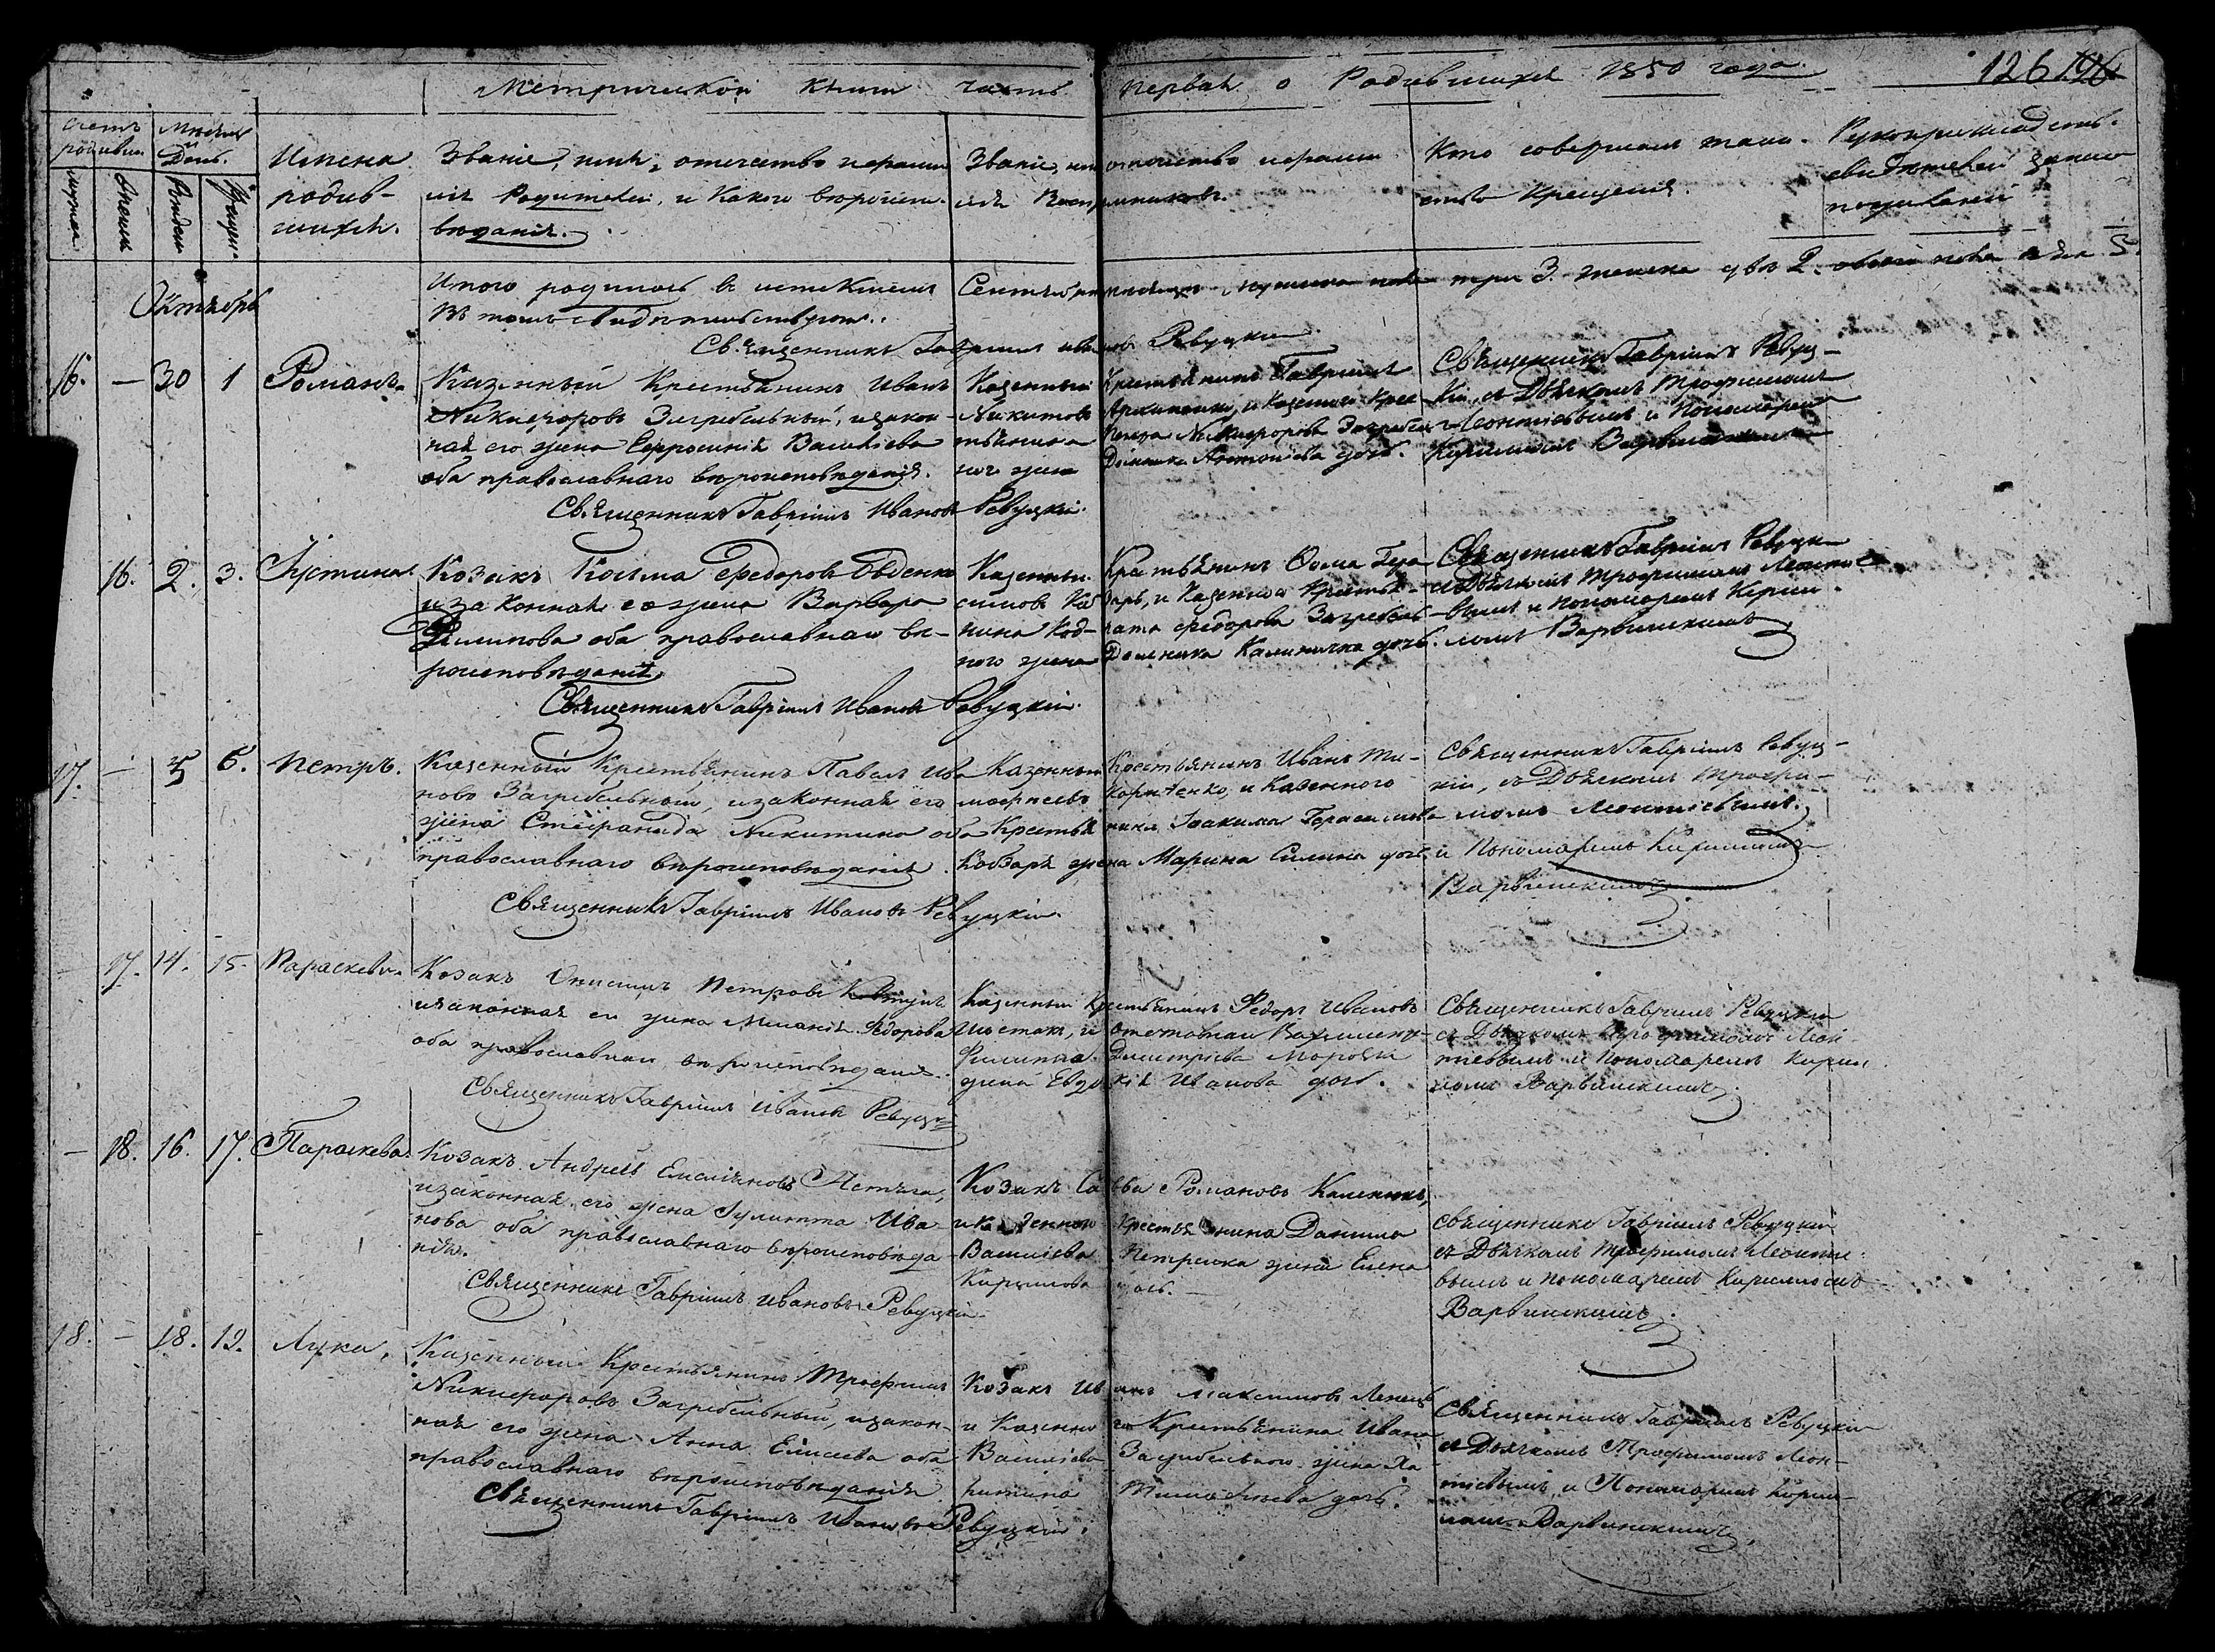 Метрической книги часть первая о Родившихся 1850 года.
126
Счетъ родивш.
Мѣсяцъ и День.
мужеск
женска
рожден
крещен
Имена родив-
шихся.
Званіе, имя, отечество и фамил
ія Родителей, и какого вѣроиспо-
вѣданія.
Званіе, имя отечество и фамил
ія Воспріемниковъ.
Кто совершалъ таин-
ство Крещенія.
Рукоприкладство
свидѣтелей записи
по желанію
Октябрь
Итого родилось въ истекшемъ Сентябрѣ мѣсяцѣ мужеска пола три 3. женска двѣ 2. обоего пола пять 5.
Въ томъ свидѣтельствуемъ.
Священникъ Гавріилъ Ивановъ Ревуцкій
16. — 30 1 Романъ.
Казенный Крестьянинъ Иванъ
Никифоровъ Загребельный, и закон-
ная его жена Евфросинія Васильева
оба православнаго вѣроисповѣданія.
Священникъ Гавріилъ Ивановъ Ревуцкій.
Казенный Крестьянинъ Гавріилъ
Никитовъ Архипенко, и Казеннаго Крес-
тьянина Никифорова Загребель-
наго жена Домникія Антоніева дочь.
Священникъ Гавріилъ Ревуц-
кій, съ Дьячкомъ Трофимомъ
Леонтіевымъ и Пономаремъ
Кирилломъ Варвинскимъ
16. 2. 3. Іустина.
Козакъ Косьма Федоровъ Овденко
и законная его жена Варвара
Филипова оба православнаго вѣ-
роисповѣданія.
Священникъ Гавріилъ Ивановъ Ревуцкій.
Казенный Крестьянинъ Фома Гера-
симовъ Кобзарь, и Казеннаго Крестья-
нина Кодрата Федорова Загребель-
наго жена Домникія Калиникова дочь.
Священникъ Гавріилъ Ревуцкій
съ Дьячкомъ Трофимомъ Леонтіе-
вымъ и Пономаремъ Кирил-
ломъ Варвинскимъ
17. — 5 6. Петръ.
Казенный Крестьянинъ Павелъ Ива
новъ Загребельный, и законная его
жена Стефанида Никитина оба
православнаго вѣроисповѣданія.
Священникъ Гавріилъ Ивановъ Ревуцкій.
Казенный Крестьянинъ Иванъ Ти-
мофѣевъ и Казенного
Крестьянина Іоакима Герасимова
Кобзаря жена Марина Силина дочь.
Священникъ Гавріилъ Ревуц-
кій, съ Дьячкомъ Трофи-
момъ Леонтіевымъ
и Пономаремъ Кирилломъ
Варвинскимъ
— 17. 14. 15. Параскева.
Козакъ Онисимъ Петровъ
и законная его жена Меланія Федорова
оба православнаго вѣроисповѣданія.
Священникъ Гавріилъ Ивановъ Ревуцкій
Казенный Крестьянинъ Федоръ Ивановъ
Шостакъ, и отставнаго
Филиппа Димитріева
жена Евдокія Иванова дочь.
Священникъ Гавріилъ Ревуцкій
съ Дьячкомъ Трофимомъ Леон-
тіевымъ и Пономаремъ Кирил-
ломъ Варвинскимъ
— 18. 16. 17. Параскева.
Козакъ Андрей Емеліяновъ
и законная его жена Іулитта Ива-
нова оба православнаго вѣроисповѣда
нія.
Священникъ Гавріилъ Ивановъ Ревуцкій.
Козакъ Савва Романовъ
и казеннаго Крестьянина Данила
Васильева Петренка жена Елена
Кирилова дочь.
Священникъ Гавріилъ Ревуцкій
съ Дьячкомъ Трофимомъ Леонтіе-
вымъ и Пономаремъ Кирилломъ
Варвинскимъ.
18. — 18. 19. Лука.
Казенный Крестьянинъ Трофимъ
Никифоровъ Загребельный, и закон-
ная его жена Анна Елисеева оба
православнаго вѣроисповѣданія
Священникъ Гавріилъ Ивановъ Ревуцкій.
Козакъ Иванъ Максимовъ
и Казеннаго Крестьянина Ивана
Васильева Загребельнаго жена Ха-
ритина Тимофеева дочь.
Священникъ Гавріилъ Ревуцкій
съ Дьячкомъ Трофимомъ Леон-
тіевымъ и Пономаремъ Кирил-
ломъ Варвинскимъ